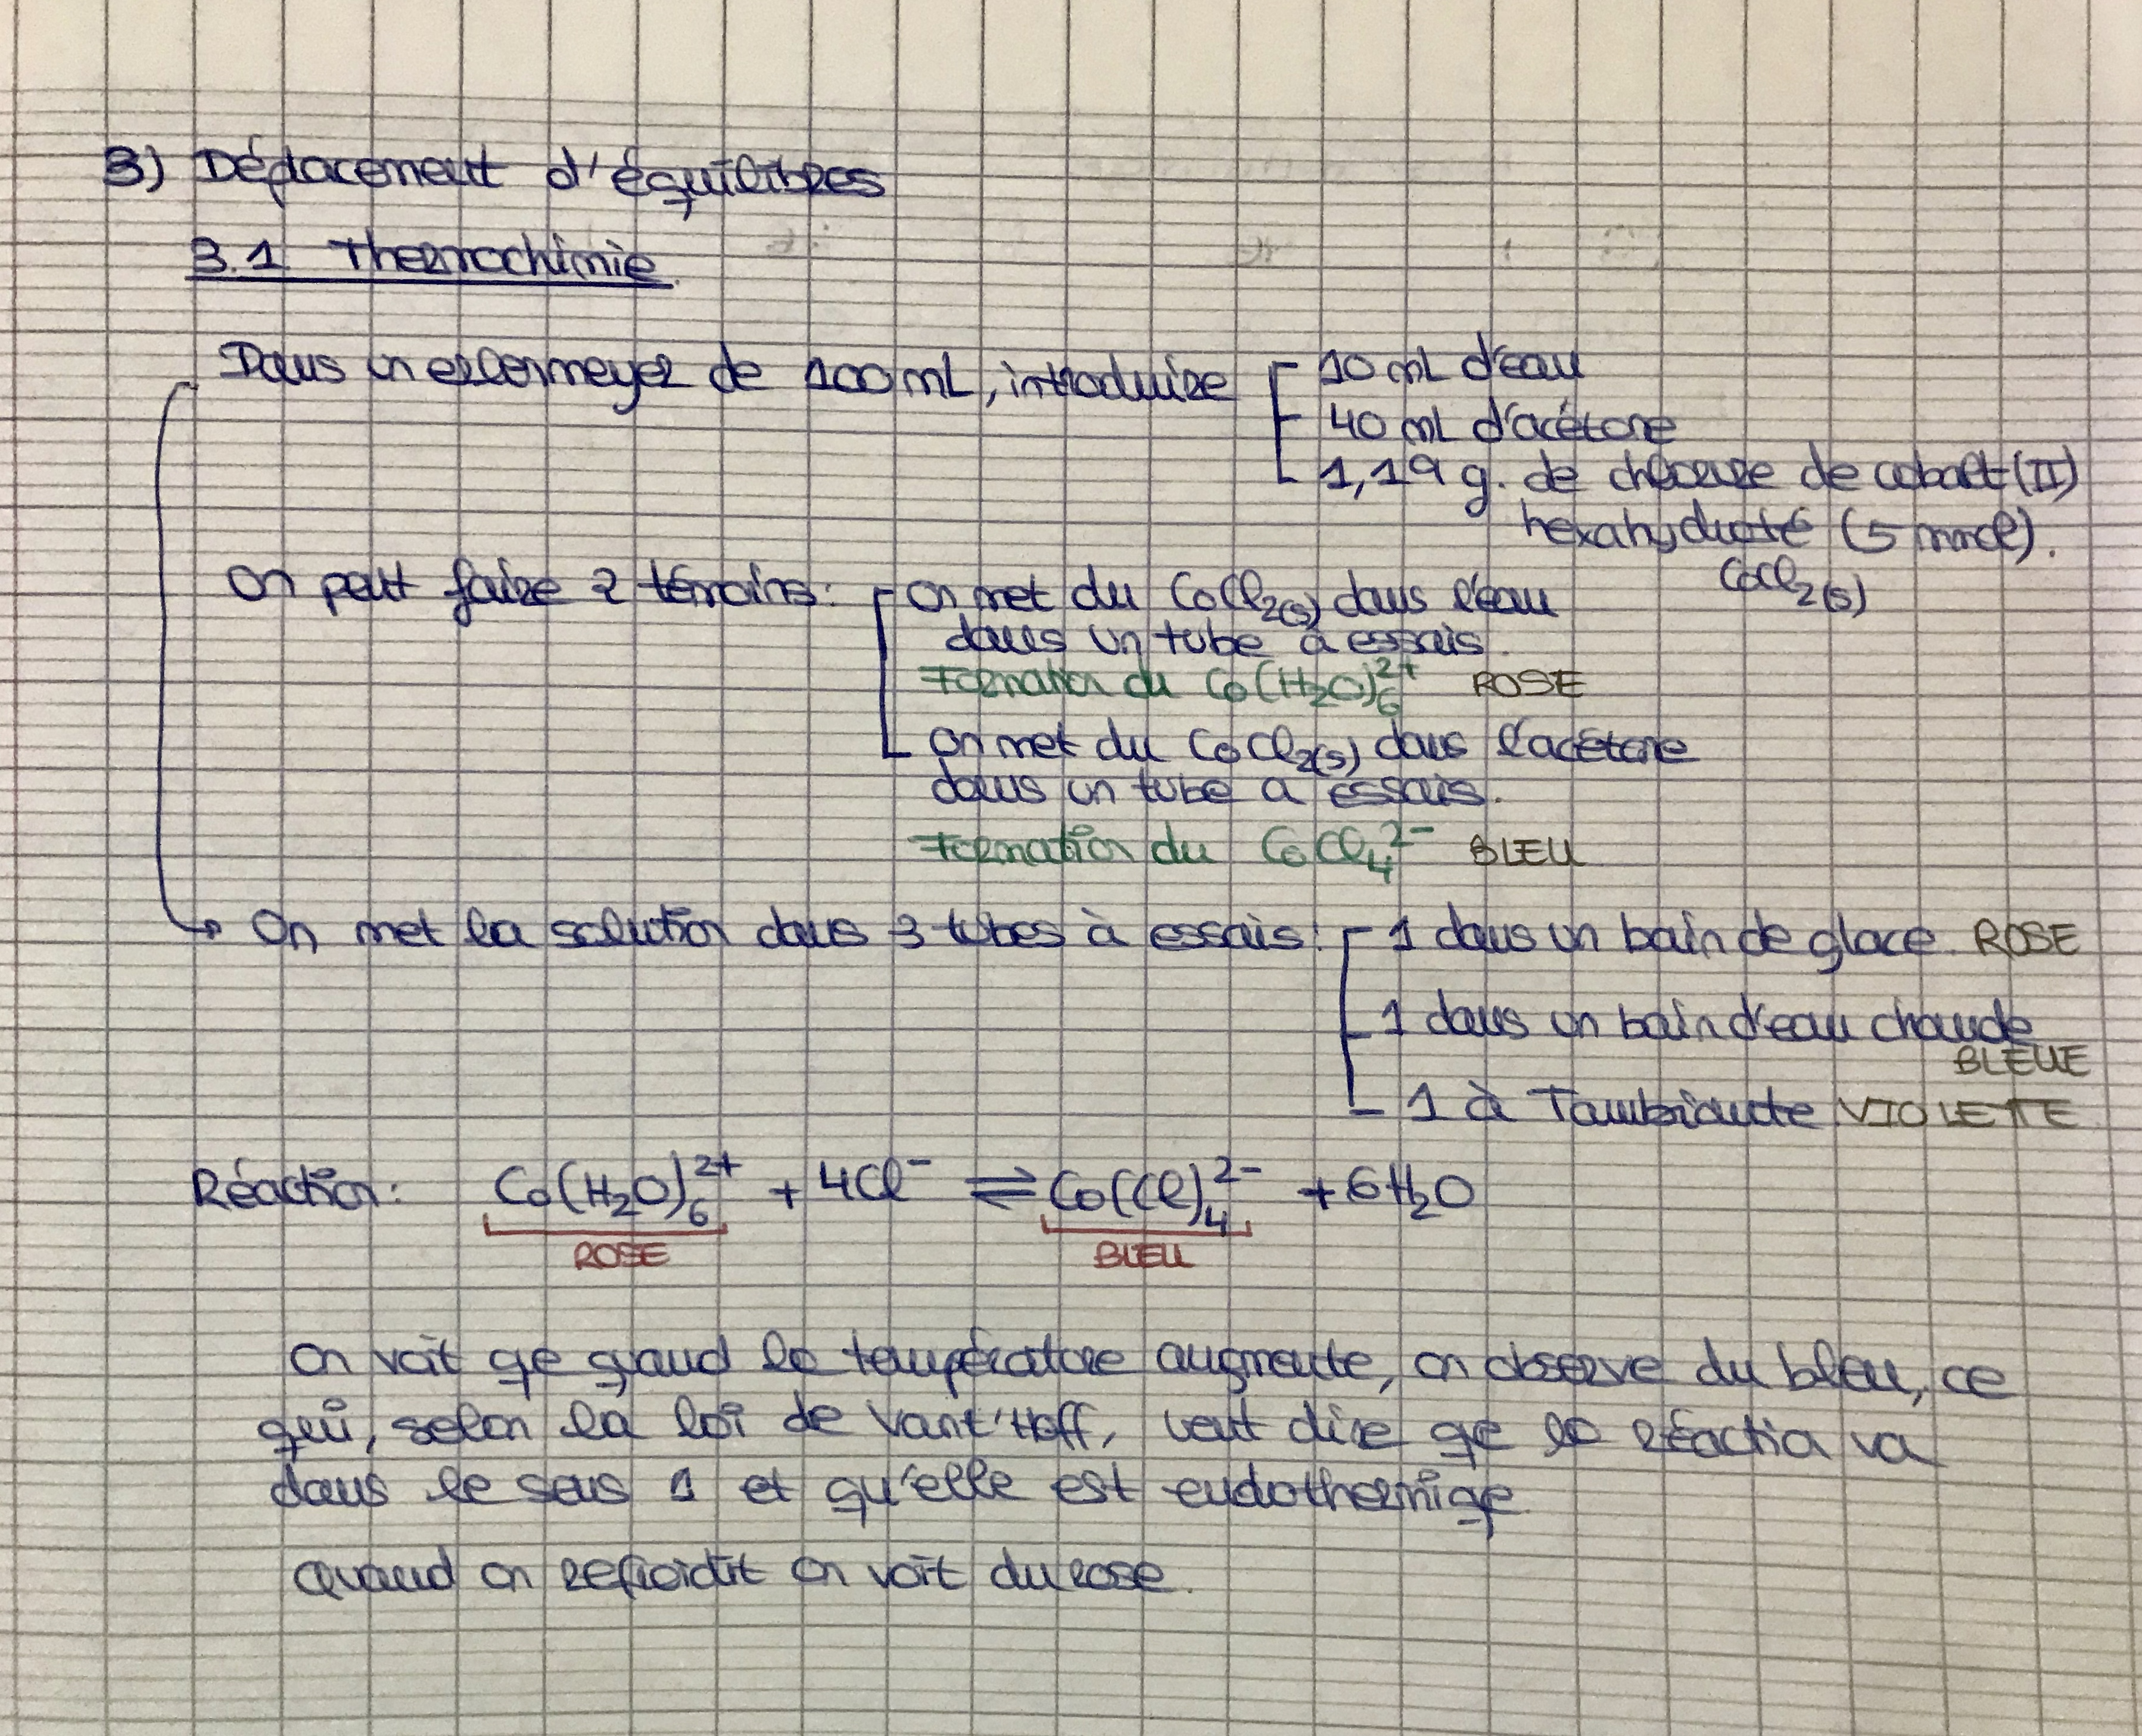 3) Déplacement d'équilibres
3.1 Thermochimie
Dans un erlenmeyer de 100 mL, introduire
10 mL d'eau
40 mL d'acétone
1,19 g. de chlorure de cobalt (II)
hexahydraté (5 mmol).
CoCl2(s)
On peut faire 2 témoins :
On met du CoCl2(s) dans l'eau
dans un tube à essais.
Formation du Co(H2O)6^2+ ROSE
On met du CoCl2(s) dans l'acétone
dans un tube a essais.
Formation du CoCl4^2- BLEU
→ On met la solution dans 3 tubes à essais :
1 dans un bain de glace. ROSE
1 dans un bain d'eau chaude
BLEUE
1 à Tambiante VIOLETTE
Réaction : Co(H2O)6^2+ + 4Cl^- ⇌ Co(Cl)4^2- + 6H2O
ROSE BLEU
On voit qe quand la température augmente, on observe du bleu, ce
qui, selon la loi de Vant'Hoff, veut dire qe la réaction va
dans le sens 1 et qu'elle est endothermiqe
Quand on refroidit on voit du rose.